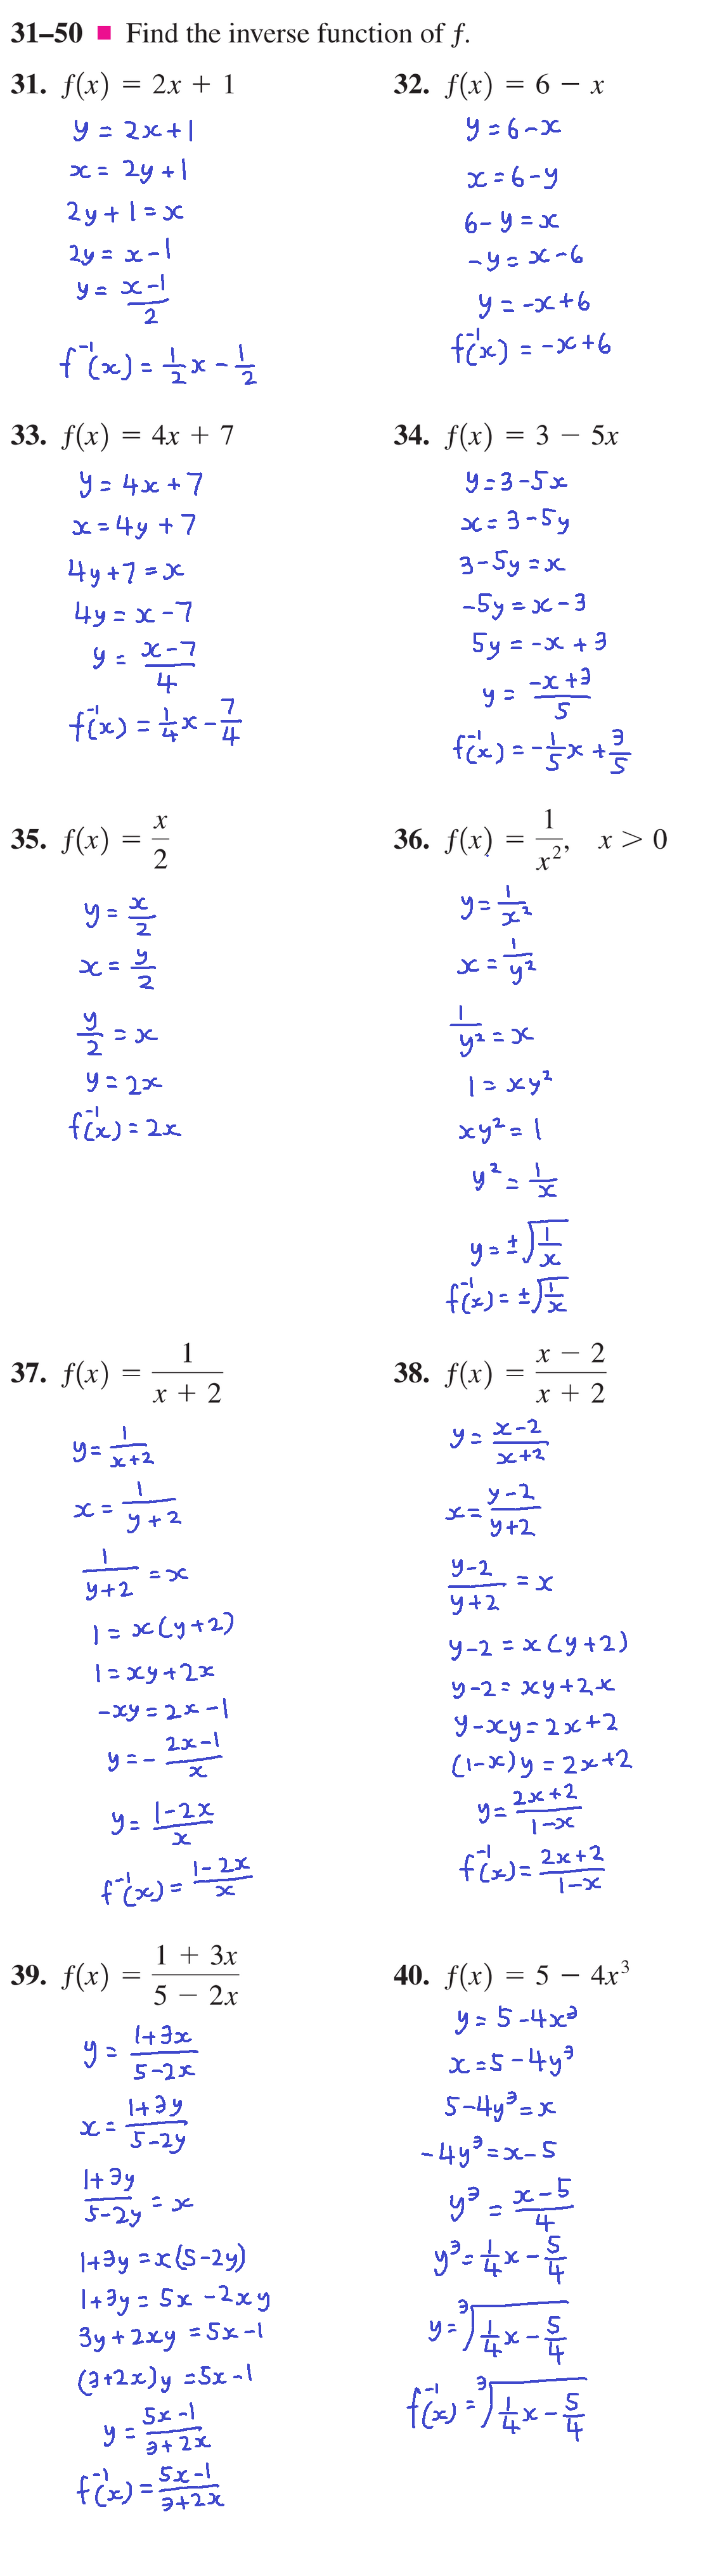 31–50 ■ Find the inverse function of f.
31. f(x) = 2x + 1
y = 2x+1
x = 2y+1
2y+1=x
2y = x-1
y = \frac{x-1}{2}
f^{-1}(x) = \frac{1}{2}x - \frac{1}{2}
32. f(x) = 6 − x
y=6-x
x=6-y
6-y=x
-y=x-6
y=-x+6
f^{-1}(x) = -x+6
33. f(x) = 4x + 7
y=4x+7
x=4y+7
4y+7=x
4y=x-7
y = \frac{x-7}{4}
f^{-1}(x) = \frac{1}{4}x - \frac{7}{4}
34. f(x) = 3 − 5x
y=3-5x
x=3-5y
3-5y=x
-5y=x-3
5y=-x+3
y = \frac{-x+3}{5}
f^{-1}(x) = -\frac{1}{5}x + \frac{3}{5}
35. f(x) = \frac{x}{2}
y = \frac{x}{2}
x = \frac{y}{2}
\frac{y}{2} = x
y=2x
f^{-1}(x) = 2x
36. f(x) = \frac{1}{x^2}, x > 0
y = \frac{1}{x^2}
x = \frac{1}{y^2}
\frac{1}{y^2} = x
1 = xy^2
xy^2 = 1
y^2 = \frac{1}{x}
y = ±\sqrt{\frac{1}{x}}
f^{-1}(x) = ±\sqrt{\frac{1}{x}}
37. f(x) = \frac{1}{x + 2}
y = \frac{1}{x+2}
x = \frac{1}{y+2}
\frac{1}{y+2} = x
1 = x(y+2)
1 = xy+2x
-xy = 2x-1
y = -\frac{2x-1}{x}
y = \frac{1-2x}{x}
f^{-1}(x) = \frac{1-2x}{x}
38. f(x) = \frac{x − 2}{x + 2}
y = \frac{x-2}{x+2}
x = \frac{y-2}{y+2}
\frac{y-2}{y+2} = x
y-2 = x(y+2)
y-2 = xy+2x
y-xy = 2x+2
(1-x)y = 2x+2
y = \frac{2x+2}{1-x}
f^{-1}(x) = \frac{2x+2}{1-x}
39. f(x) = \frac{1 + 3x}{5 − 2x}
y = \frac{1+3x}{5-2x}
x = \frac{1+3y}{5-2y}
\frac{1+3y}{5-2y} = x
1+3y = x(5-2y)
1+3y = 5x-2xy
3y+2xy = 5x-1
(3+2x)y = 5x-1
y = \frac{5x-1}{3+2x}
f^{-1}(x) = \frac{5x-1}{3+2x}
40. f(x) = 5 − 4x^3
y = 5-4x^3
x = 5-4y^3
5-4y^3 = x
-4y^3 = x-5
y^3 = \frac{x-5}{4}
y^3 = \frac{1}{4}x - \frac{5}{4}
y = \sqrt[3]{\frac{1}{4}x - \frac{5}{4}}
f^{-1}(x) = \sqrt[3]{\frac{1}{4}x - \frac{5}{4}}